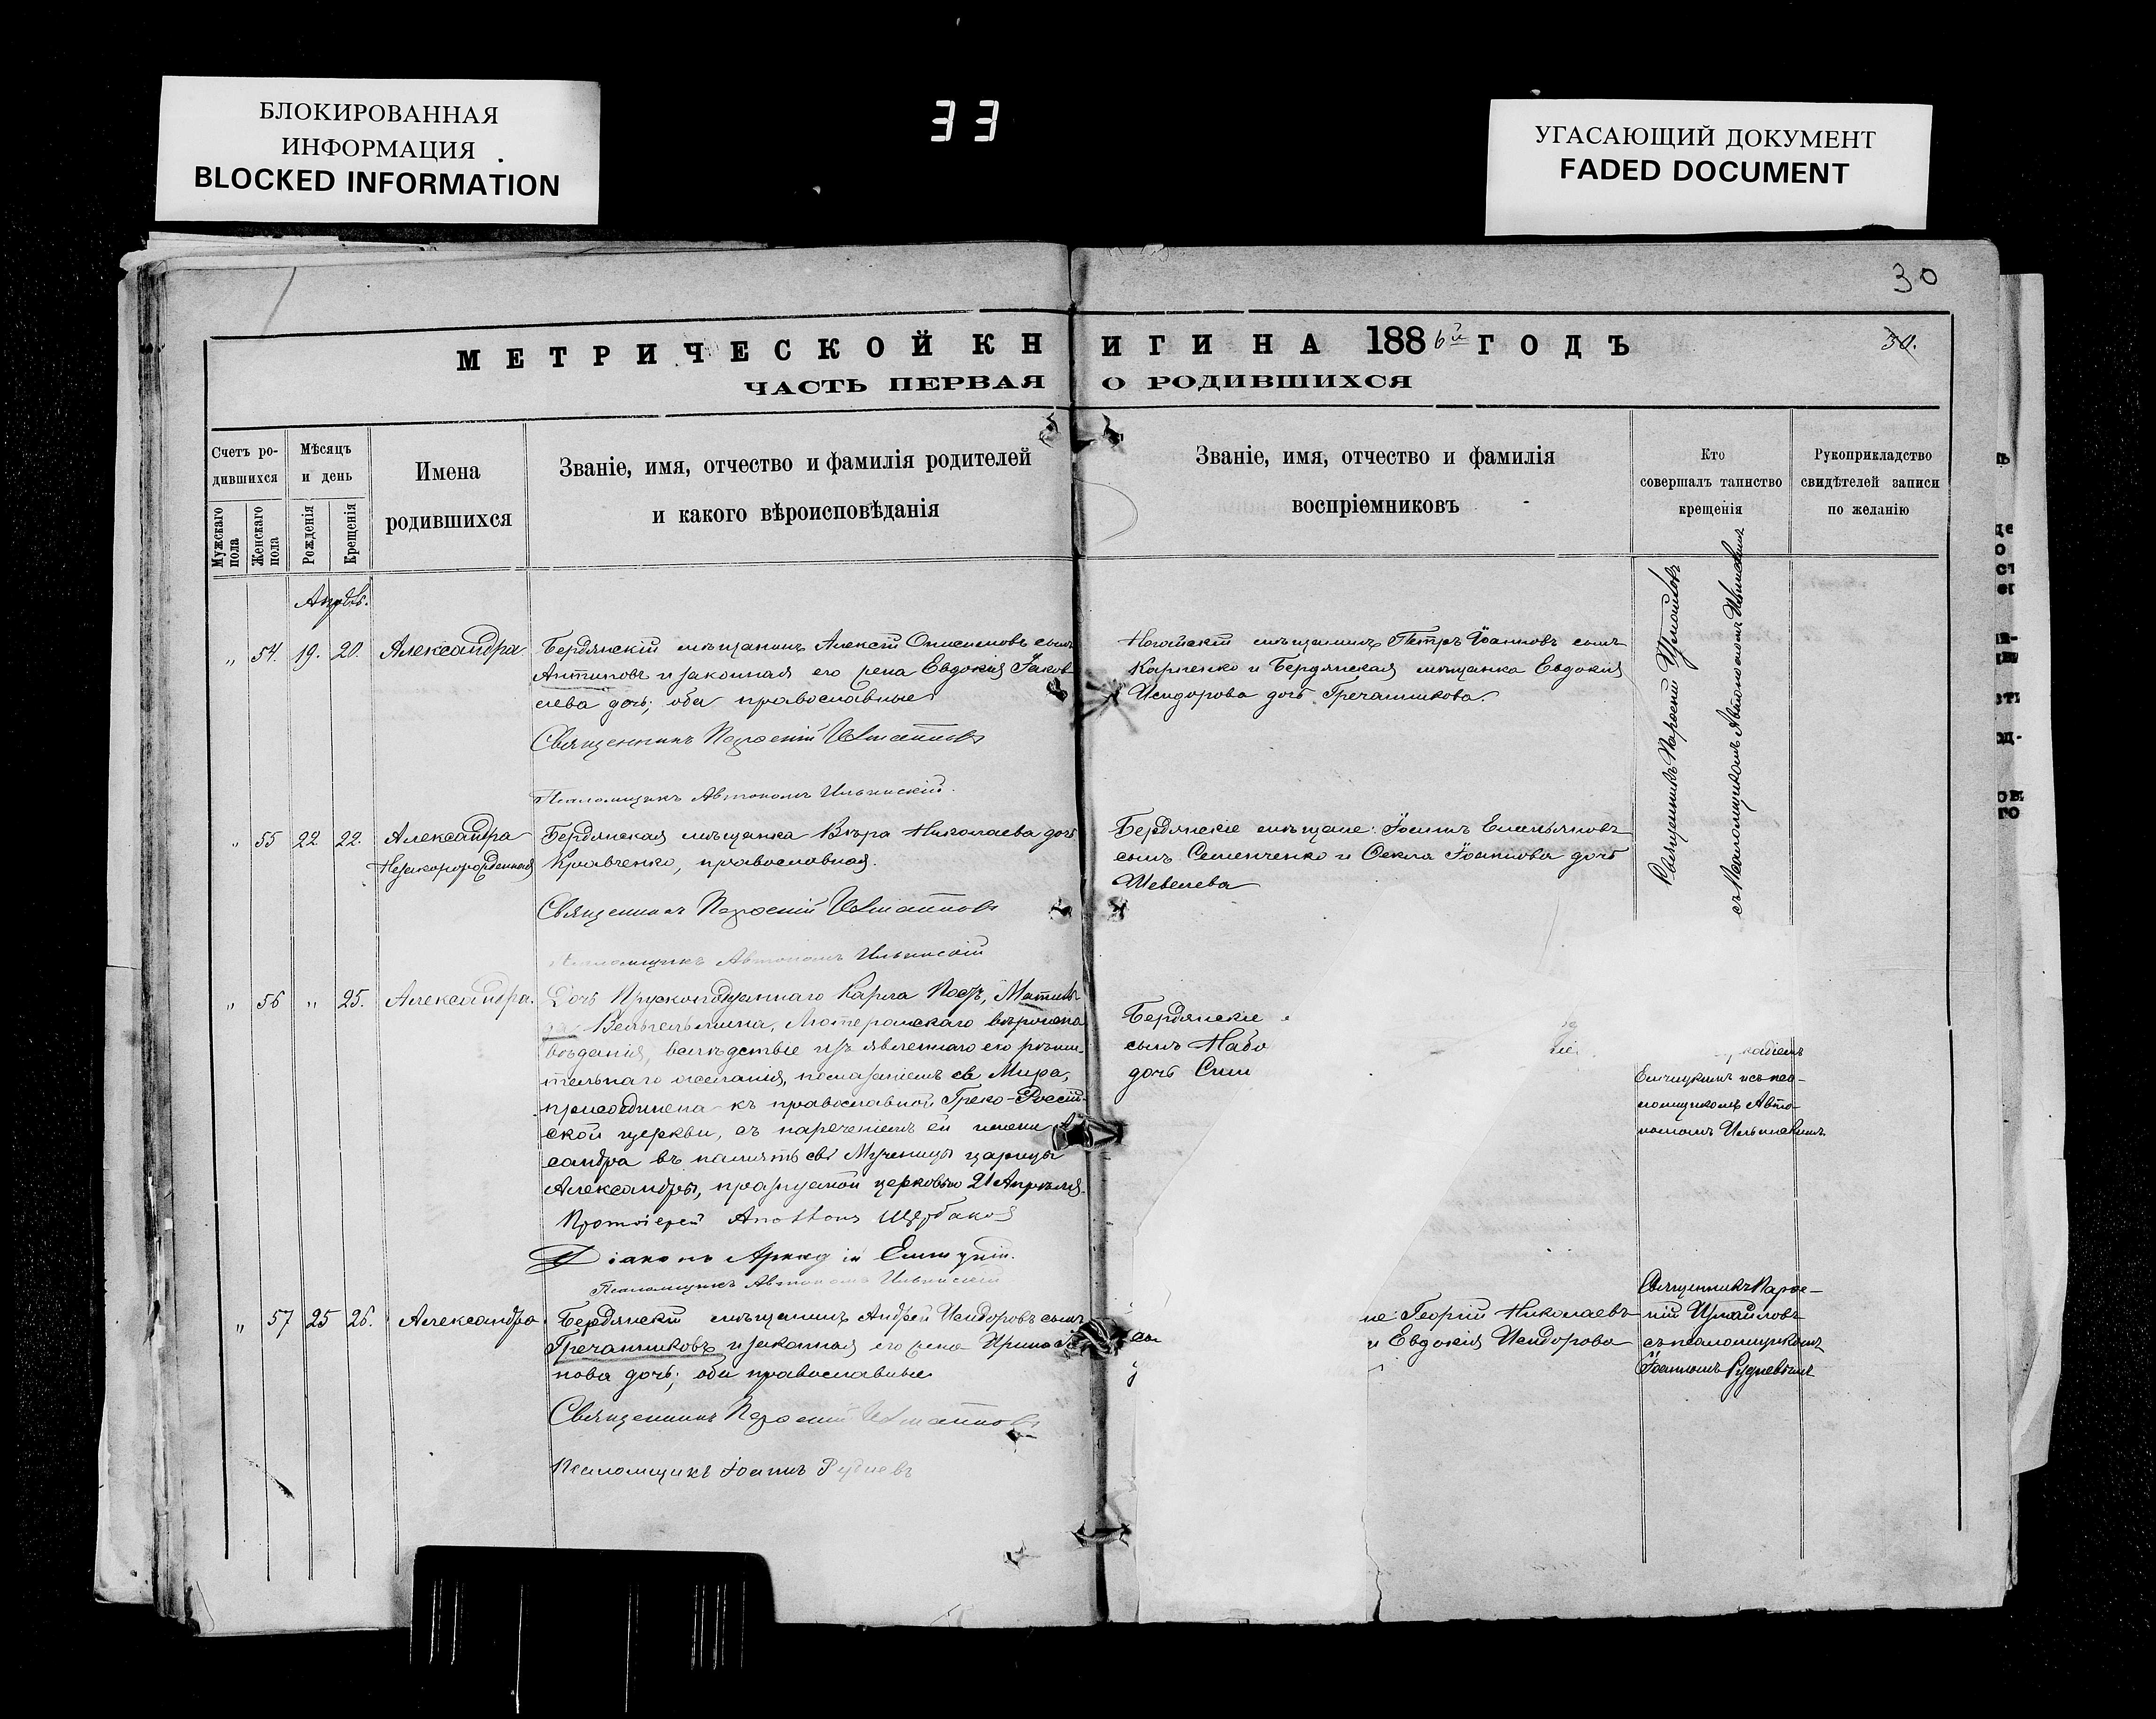 БЛОКИРОВАННАЯ
ИНФОРМАЦИЯ
BLOCKED INFORMATION
33
УГАСАЮЩИЙ ДОКУМЕНТ
FADED DOCUMENT
30
МЕТРИЧЕСКОЙ КНИГИ НА 1886й ГОДЪ
30.
ЧАСТЬ ПЕРВАЯ О РОДИВШИХСЯ
Счетъ ро-
дившихся
Мужскаго
пола
Женскаго
пола
Мѣсяцъ
и день
Рожденія
Крещенія
Имена
родившихся
Званіе, имя, отчество и фамилія родителей
и какого вѣроисповѣданія
Званіе, имя, отчество и фамилія
воспріемниковъ
Кто
совершалъ таинство
крещенія
Рукоприкладство
свидѣтелей записи
по желанію
„ 54. 19. 20. Александра
Бердянскій мѣщанинъ Алексѣй сынъ
Антиповъ и законная его жена Евдокія Іаков
лева дочь; оба православные
Священникъ
Псаломщикъ Автономъ Ильинскій.
Ногайскій мѣщанинъ Петръ Іоанновъ сынъ
Карпенко и Бердянская мѣщанка Евдокія
Исидорова дочь Гречанникова.
Священникъ
съ Псаломщикомъ Автономомъ Ильинскимъ
„ 55 22 22. Александра
Незаконорожденная
Бердянская мѣщанка Вѣра Николаева дочь
Кравченко, православная.
Священникъ
Псаломщикъ Автономъ Ильинскій
Бердянскіе мѣщане: Іоаннъ Емельяновъ
сынъ Семенченко и Ѳекла Іоаннова дочь
Шевелева
„ 56 „ 25. Александра.
Дочь Прусскоподданнаго Карла
Вельгельмина, Лютеранскаго вѣроиспо
вѣданія, вслѣдствіе изъявленнаго ею рѣши-
тельнаго желанія, помазаніемъ св. Мира,
присоединена къ православной Греко-Россій-
ской церкви, съ нареченіемъ ей имени
сандра въ память св. Мученицы царицы
Александры, празднуемой церковью 21 Апрѣля.
Протоіерей Щербаковъ
Діаконъ Аркадій
Псаломщикъ Автономъ Ильинскій
Бердянскіе
сынъ
дочь
и пса-
ломщикомъ Авто-
номомъ Ильинскимъ.
„ 57 25 26. Александра
Бердянскій мѣщанинъ Андрей Исидоровъ сынъ
Гречанниковъ и законная его жена Ирина
нова дочь; оба православные
Священникъ
Псаломщикъ Іоаннъ Рудневъ
не: Георгій Николаевъ
и Евдокія Исидорова
Священникъ Парѳе-
ній Измайловъ
съ псаломщикомъ
Іоанномъ Рудневымъ